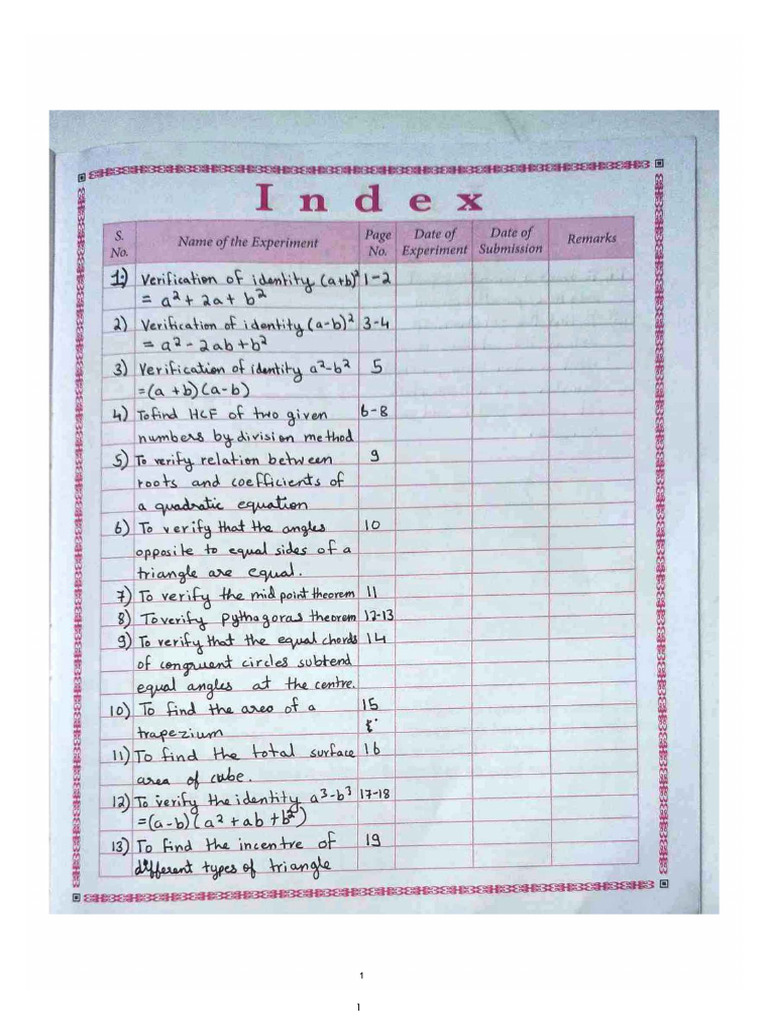 Index
S. No. Name of the Experiment Page No. Date of Experiment Date of Submission Remarks
1.) Verification of identity (a+b)² 1-2
= a² + 2a + b²
2) Verification of identity (a-b)² 3-4
= a² - 2ab + b²
3) Verification of identity a²-b² 5
=(a +b)(a-b)
4) To find HCF of two given 6-8
numbers by division method
5) To verify relation between 9
roots and coefficients of
a quadratic equation
6) To verify that the angles 10
opposite to equal sides of a
triangle are equal.
7) To verify the mid point theorem 11
8) To verify pythagoras theorem 12-13
9) To verify that the equal chords 14
of congruent circles subtend
equal angles at the centre.
10) To find the area of a 15
trapezium
11) To find the total surface 16
area of cube.
12) To verify the identity a³-b³ 17-18
=(a-b)(a² + ab + b²)
13) To find the incentre of 19
different types of triangle
1
1